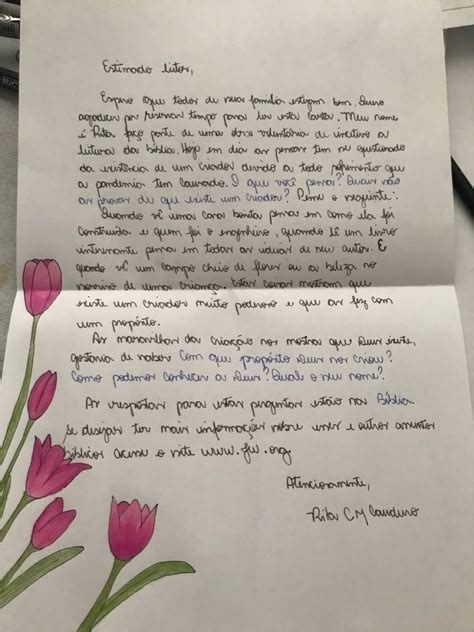 Estimado leitor,
Espero que todos de sua família estejam bem. Quero
agradecer por reservar tempo para ler esta carta. Meu nome
é Rita faço parte de uma obra voluntária de incetivo a
leitura da bíblia. Hoje em dia as pessoas tem se questionado
da existência de um criador devido a todo sofrimento que
a pandemia tem causado. O que você pensa? Quais são
as provas de que existe um criador? Pense o seguinte:
Quando vê uma casa bonita pensa em como ela foi
construída e quem foi o engenheiro, quando lê um livro
interessante pensa em todas as ideias de seu autor. E
quando vê um campo cheio de flores ou a beleza no
sorriso de uma criança. Estas coisas mostram que
existe um criador muito poderoso e que as fez com
um propósito.
As maravilhas da criação nos mostra que Deus existe,
gostaria de saber Com que propósito Deus nos criou?
Como podemos conhecer a Deus? Qual o seu nome?
As respostas para estas perguntas estão na Bíblia
se desejar ter mais informações sobre esses e outros assuntos
bíblicos acesse o site www.jw.org.
Atenciosamente,
Rita C M